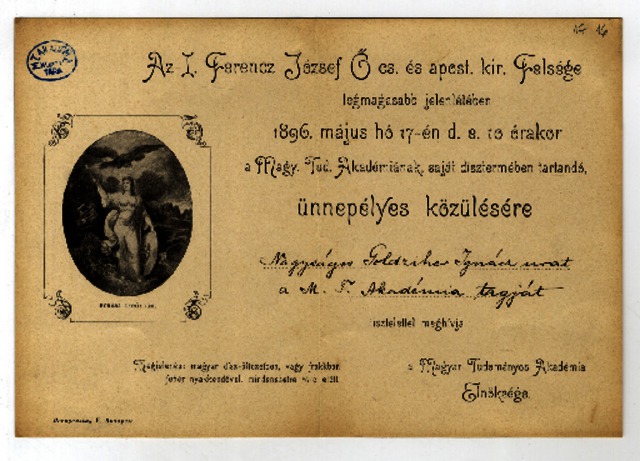 Az I. Ferencz József Ő cs. és apost. kir. Felsége
legmagasabb jelenlétében
1896. május hó 17-én d. e. 10 órakor
a Magy. Tud. Akadémiának, saját dísztermében tartandó,
ünnepélyes közülésére
Nagyságos Goldziher Ignácz urat
a M. T. Akadémia tagját
tisztelettel meghívja
a Magyar Tudományos Akadémia
Elnöksége.
Megjelenés: magyar dísz-öltözetben, vagy frakkban
fehér nyakkendővel, mindenesetre